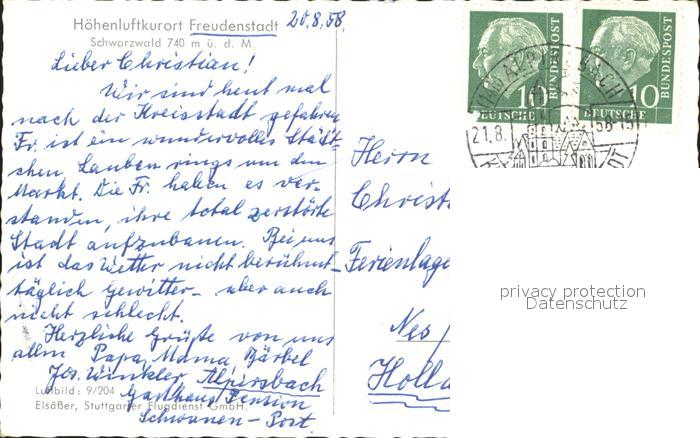 Höhenluftkurort Freudenstadt 20.8.58.
Schwarzwald 740 m ü. d. M.
Lieber Christian!
Wir sind heut mal
nach der Kreisstadt gefahren
Fr. ist ein wundervolles Städt-
chen, Lauben rings um den
Markt. Die Fr. haben es ver-
standen, ihre total zerstörte
Stadt aufzubauen. Bei uns
ist das Wetter nicht berühmt-
täglich Gewitter - aber auch
nicht schlecht.
Herzliche Grüße von uns
allen Papa, Mama, Bärbel
Jos. Winkler Alpirsbach
Gasthaus Pension
Schwanen-Post.
Luftbild: 9/204
Elsäßer, Stuttgarter Flugdienst GmbH.
10
DEUTSCHE
BUNDESPOST
10
DEUTSCHE
BUNDESPOST
ALPIRSBACH
21.8.
58-15
Herrn
Christ
Ferienlage
Nes
Holla
privacy protection
Datenschutz